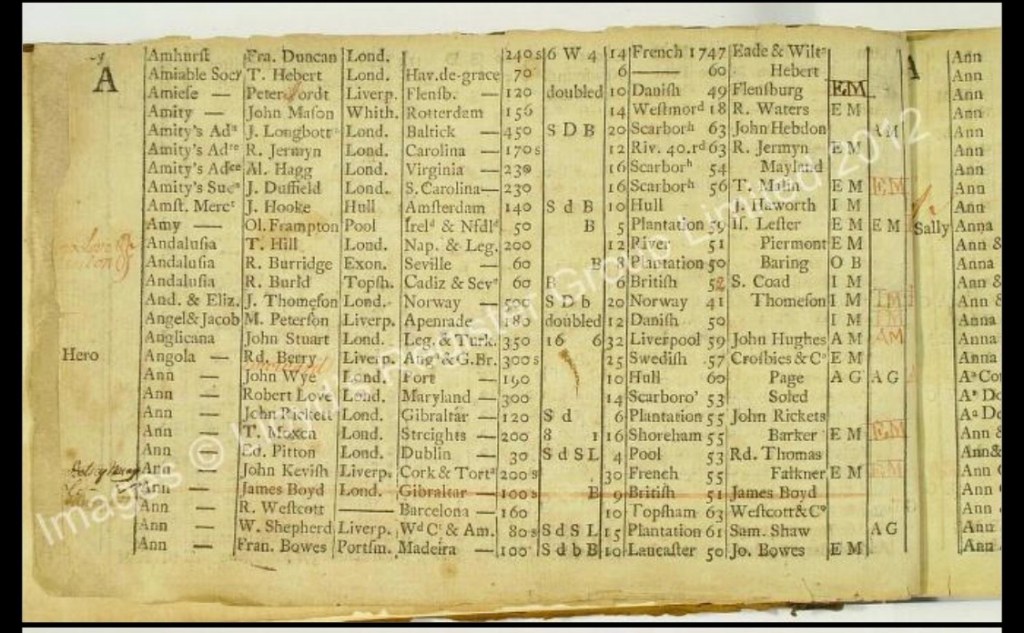 A
Amhurſt Fra. Duncan Lond. 240s 6 W 4 14 French 1747 Eade & Wilts
Amiable Socy T. Hebert Lond. Hav.de-grace 70 6 — 60 Hebert
Amieſe — Peter Jordt Liverp. Flenſb. — 120 doubled 10 Daniſh 49 Flenſburg EM
Amity — John Maſon Whith. Rotterdam 156 14 Weſtmord 18 R. Waters E M
Amity's Ada J. Longbott Lond. Baltick — 450 S D B 20 Scarborh 63 John Hebdon AM
Amity's Adre R. Jermyn Lond. Carolina — 170s 12 Riv. 40.rd 63 R. Jermyn E M
Amity's Adce Al. Hagg Lond. Virginia — 230 16 Scarborh 54 Mayland
Amity's Sucs J. Duffield Lond. S. Carolina — 230 16 Scarborh 56 T. Malin E M EM
Amſt. Merct J. Hooke Hull Amſterdam 140 S d B 10 Hull Haworth I M
Amy — Ol. Frampton Pool Ireld & Nfdld 50 B 5 Plantation 59 Leſter E M E M
Andaluſia T. Hill Lond. Nap. & Leg. 200 12 River 51 Piermont E M
Andaluſia R. Burridge Exon. Seville — 60 B 8 Plantation 50 Baring O B
Andaluſia R. Burld Topſh. Cadiz & Seve 60 B 6 Britiſh 52 S. Coad I M
And. & Eliz. J. Thomeſon Lond. Norway — 500 S D b 20 Norway 41 Thomeſon I M IM
Angel & Jacob M. Peterſon Liverp. Apenrade — 180 doubled 12 Daniſh 50 I M IM
Anglicana John Stuart Lond. Leg. & Turk. 350 16 6 32 Liverpool 59 John Hughes A M AM
Hero Angola — Rd. Berry Liverp. Anga & G.Br. 300s 25 Swediſh 57 Croſbies & Co E M
Ann — John Wye Lond. Port — 190 10 Hull 60 Page A G A G
Ann — Robert Love Lond. Maryland — 300 14 Scarboro' 53 Soled
Ann — John Rickett Lond. Gibraltar — 120 S d 6 Plantation 55 John Rickets
Ann — T. Moxen Lond. Streights — 200 8 1 16 Shoreham 55 Barker E M EM
Ann — Ed. Pitton Lond. Dublin — 30 S d SL 4 Pool 53 Rd. Thomas
Ann — John Keviſh Liverp. Cork & Torta 200s 30 French 55 Falkner E M EM
Ann — James Boyd Lond. Gibraltar — 100s B 9 Britiſh 51 James Boyd
Ann — R. Weſtcott — Barcelona — 160 10 Topſham 63 Weſtcott & Co
Ann — W. Shepherd Liverp. Wd Ct & Am. 80s S d S L 15 Plantation 61 Sam. Shaw A G
Ann — Fran. Bowes Portſm. Madeira — 100 S d b B 10 Lancaſter 50 Jo. Bowes E M
A
Ann
Ann
Ann
Ann
Ann
Ann
Ann
Ann
Ann
Sally Anna
Ann &
Anna
Ann &
Ann &
Anna
Anna
Anna
Aa Co
Aa De
Aa De
Ann &
Ann &
Ann
Ann
Ann
Ann
Ann
Images © Lloyd's Register Group Limited 2012